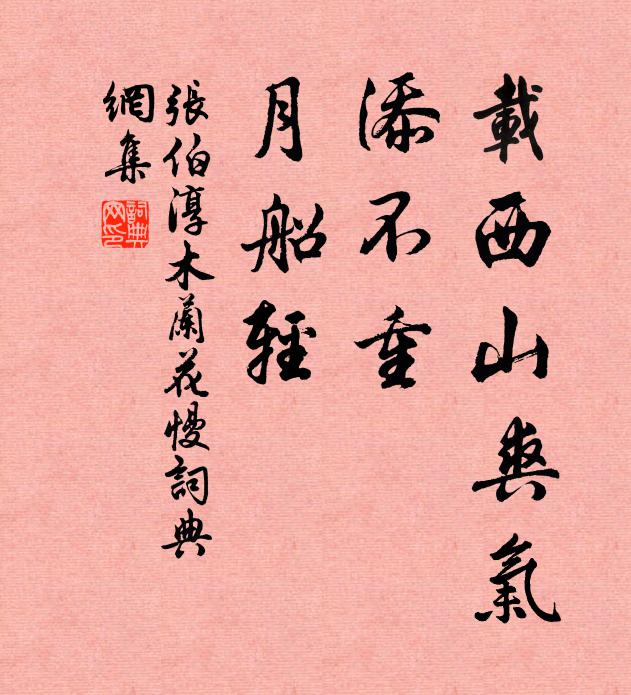 載西山爽氣
添不重
月船輕
張伯淳木蘭花慢詞典
網集
詞典網印